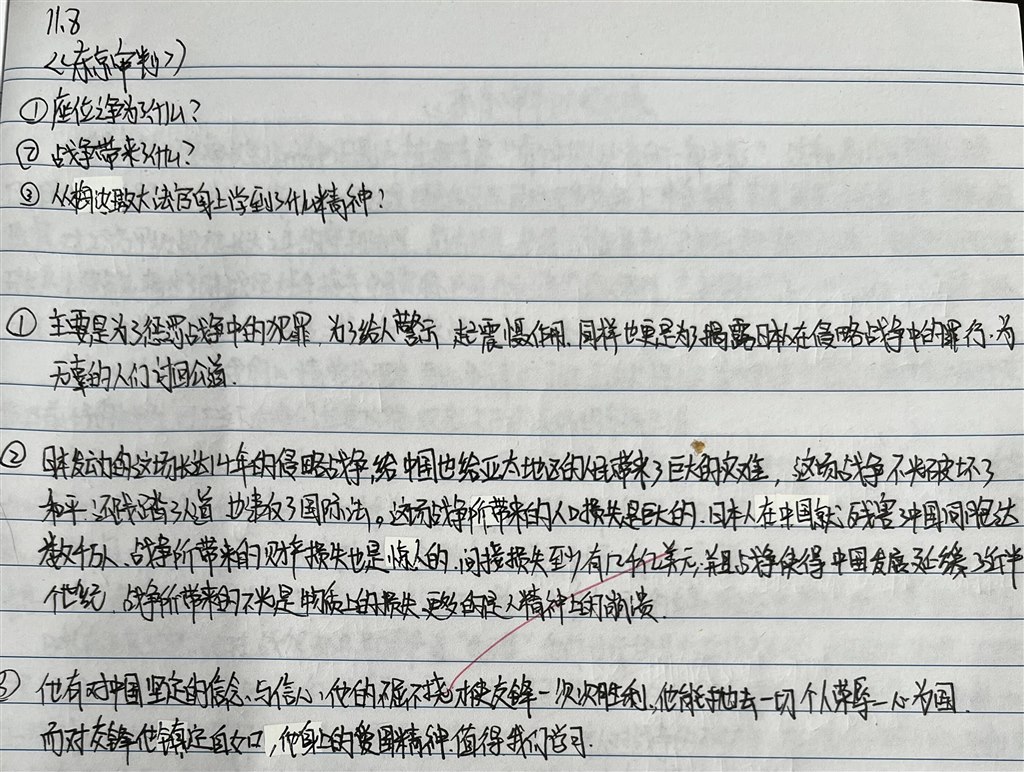 11.8
《东京审判》
①座位之争为了什么?
②战争带来了什么?
③从梅汝璈大法官身上学到了什么精神?
① 主要是为了惩罚战争中的犯罪,为了给人警示,起震慑作用.同样也更是为了揭露日本在侵略战争中的罪行.为
无辜的人们讨回公道.
② 日本发动的这场长达14年的侵略战争,给中国也给亚太地区的人民带来了巨大的灾难,这场战争不光破坏了
和平,还践踏了人道,也違反了国际法。这场战争所带来的人口损失是巨大的.日本人在中国就残害了中国同胞达
数千万人.战争所带来的财产损失也是惊人的.间接损失至少有几千亿美元,并且战争使得中国发展延缓了近半
个世纪.战争所带来的不光是物质上的损失,更多的是人精神上的崩溃.
③ 他有对中国坚定的信念与信心.他的不屈不挠才使交锋一次次胜利.他能抛去一切个人荣辱一心为国.
面对交锋他镇定自如,他身上的爱国精神值得我们学习.